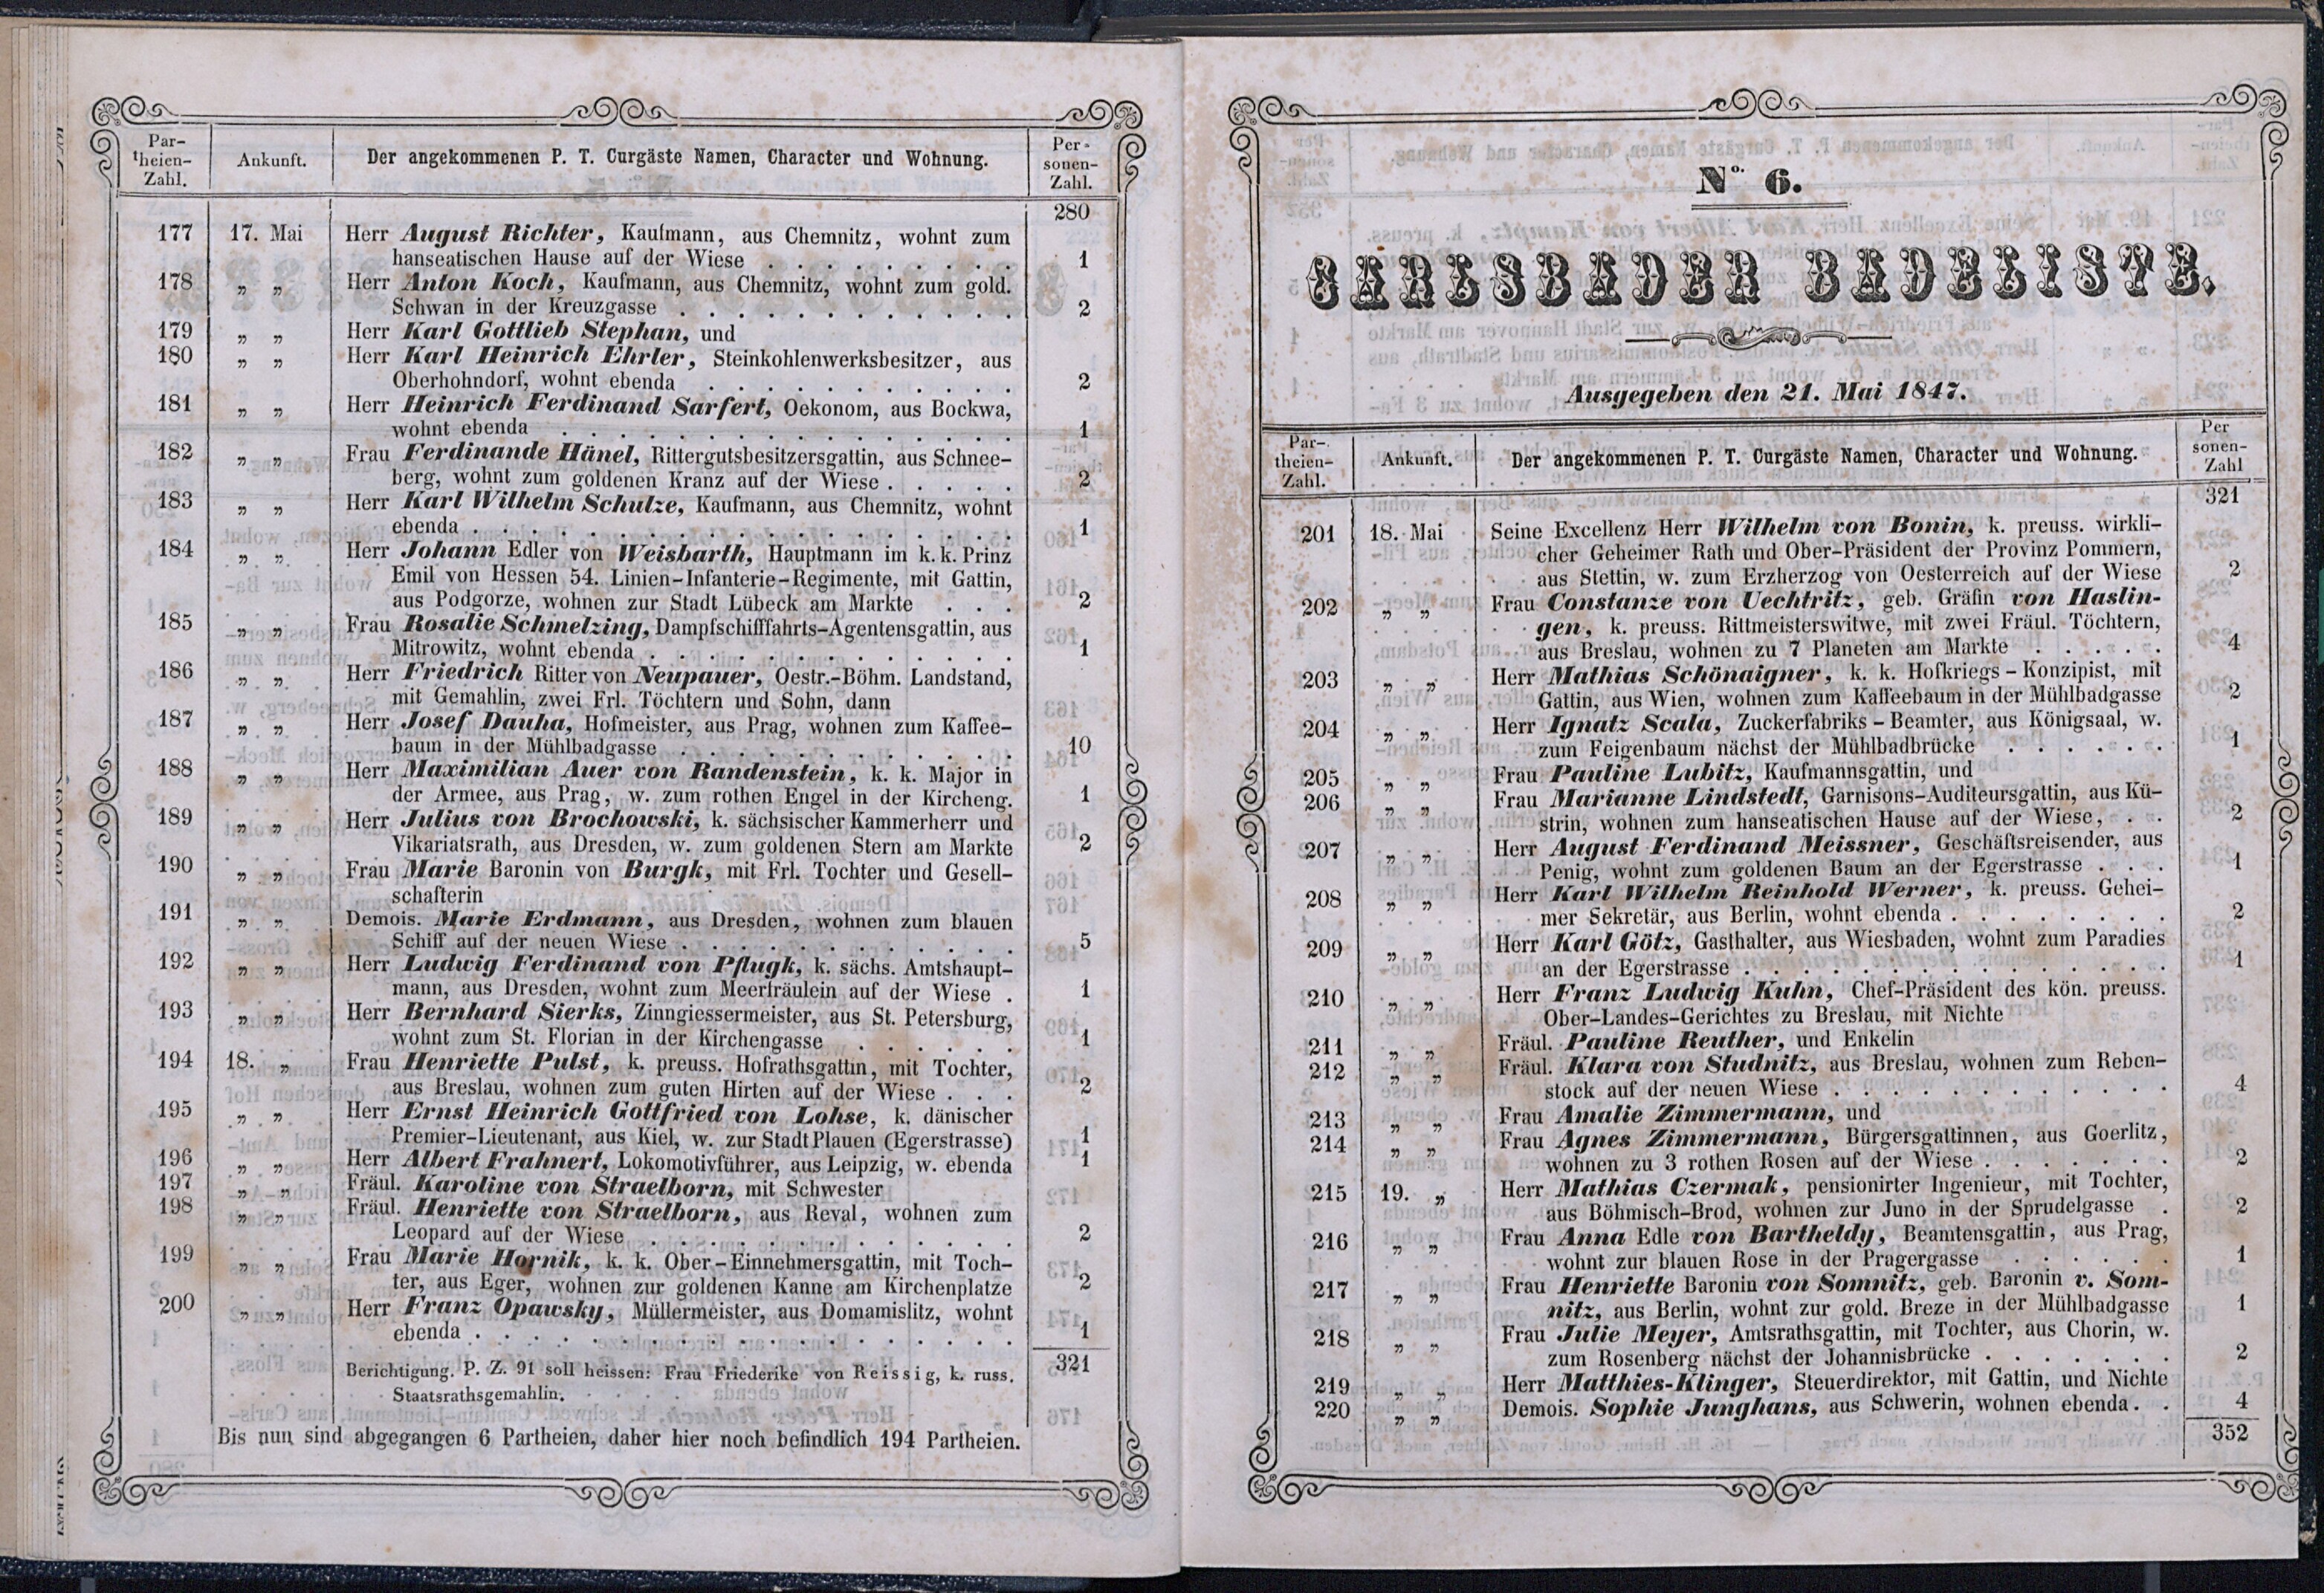 Par-
theien-
Zahl.
Ankunft.
Der angekommenen P. T. Curgäste Namen, Character und Wohnung.
Per-
sonen-
Zahl.
280
177 17. Mai Herr August Richter, Kaufmann, aus Chemnitz, wohnt zum
hanseatischen Hause auf der Wiese . . . . . . . . . 1
178 „ „ Herr Anton Koch, Kaufmann, aus Chemnitz, wohnt zum gold.
Schwan in der Kreuzgasse . . . . . . . . . . . . 2
179 „ „ Herr Karl Gottlieb Stephan, und
180 „ „ Herr Karl Heinrich Ehrler, Steinkohlenwerksbesitzer, aus
Oberhohndorf, wohnt ebenda . . . . . . . . . . . 2
181 „ „ Herr Heinrich Ferdinand Sarfert, Oekonom, aus Bockwa,
wohnt ebenda . . . . . . . . . . . . . . . . 1
182 „ „ Frau Ferdinande Hänel, Rittergutsbesitzersgattin, aus Schnee-
berg, wohnt zum goldenen Kranz auf der Wiese . . . . . 2
183 „ „ Herr Karl Wilhelm Schulze, Kaufmann, aus Chemnitz, wohnt
ebenda . . . . . . . . . . . . . . . . . . . 1
184 „ „ Herr Johann Edler von Weisbarth, Hauptmann im k. k. Prinz
Emil von Hessen 54. Linien-Infanterie-Regimente, mit Gattin,
aus Podgorze, wohnen zur Stadt Lübeck am Markte . . . 2
185 „ „ Frau Rosalie Schmelzing, Dampfschifffahrts-Agentensgattin, aus
Mitrowitz, wohnt ebenda . . . . . . . . . . . . . 1
186 „ „ Herr Friedrich Ritter von Neupauer, Oestr.-Böhm. Landstand,
mit Gemahlin, zwei Frl. Töchtern und Sohn, dann
187 „ „ Herr Josef Dauha, Hofmeister, aus Prag, wohnen zum Kaffee-
baum in der Mühlbadgasse . . . . . . . . . . . . 10
188 „ „ Herr Maximilian Auer von Randenstein, k. k. Major in
der Armee, aus Prag, w. zum rothen Engel in der Kircheng. 1
189 „ „ Herr Julius von Brochowski, k. sächsischer Kammerherr und
Vikariatsrath, aus Dresden, w. zum goldenen Stern am Markte 2
190 „ „ Frau Marie Baronin von Burgk, mit Frl. Tochter und Gesell-
schafterin
191 „ „ Demois. Marie Erdmann, aus Dresden, wohnen zum blauen
Schiff auf der neuen Wiese . . . . . . . . . . . . 5
192 „ „ Herr Ludwig Ferdinand von Pflugk, k. sächs. Amtshaupt-
mann, aus Dresden, wohnt zum Meerfräulein auf der Wiese . 1
193 „ „ Herr Bernhard Sierks, Zinngiessermeister, aus St. Petersburg,
wohnt zum St. Florian in der Kirchengasse . . . . . . 1
194 18. „ Frau Henriette Pulst, k. preuss. Hofrathsgattin, mit Tochter,
aus Breslau, wohnen zum guten Hirten auf der Wiese . . . 2
195 „ „ Herr Ernst Heinrich Gottfried von Lohse, k. dänischer
Premier-Lieutenant, aus Kiel, w. zur Stadt Plauen (Egerstrasse) 1
196 „ „ Herr Albert Frahnert, Lokomotivführer, aus Leipzig, w. ebenda 1
197 „ „ Fräul. Karoline von Straelborn, mit Schwester
198 „ „ Fräul. Henriette von Straelborn, aus Reval, wohnen zum
Leopard auf der Wiese . . . . . . . . . . . . . 2
199 „ „ Frau Marie Hornik, k. k. Ober-Einnehmersgattin, mit Toch-
ter, aus Eger, wohnen zur goldenen Kanne am Kirchenplatze 2
200 „ „ Herr Franz Opawsky, Müllermeister, aus Domamislitz, wohnt
ebenda . . . . . . . . . . . . . . . . . . . 1
321
Berichtigung. P. Z. 91 soll heissen: Frau Friederike von Reissig, k. russ.
Staatsrathsgemahlin.
Bis nun sind abgegangen 6 Partheien, daher hier noch befindlich 194 Partheien.
No. 6.
CARLSBADER BADELISTE.
Ausgegeben den 21. Mai 1847.
Par-
theien-
Zahl.
Ankunft.
Der angekommenen P. T. Curgäste Namen, Character und Wohnung.
Per
sonen-
Zahl
321
201 18. Mai Seine Excellenz Herr Wilhelm von Bonin, k. preuss. wirkli-
cher Geheimer Rath und Ober-Präsident der Provinz Pommern,
aus Stettin, w. zum Erzherzog von Oesterreich auf der Wiese 2
202 „ „ Frau Constanze von Uechtritz, geb. Gräfin von Haslin-
gen, k. preuss. Rittmeisterswitwe, mit zwei Fräul. Töchtern,
aus Breslau, wohnen zu 7 Planeten am Markte . . . . . 4
203 „ „ Herr Mathias Schönaigner, k. k. Hofkriegs-Konzipist, mit
Gattin, aus Wien, wohnen zum Kaffeebaum in der Mühlbadgasse 2
204 „ „ Herr Ignatz Scala, Zuckerfabriks-Beamter, aus Königsaal, w.
zum Feigenbaum nächst der Mühlbadbrücke . . . . . . 1
205 „ „ Frau Pauline Lubitz, Kaufmannsgattin, und
206 „ „ Frau Marianne Lindstedt, Garnisons-Auditeursgattin, aus Kü-
strin, wohnen zum hanseatischen Hause auf der Wiese, . . 2
207 „ „ Herr August Ferdinand Meissner, Geschäftsreisender, aus
Penig, wohnt zum goldenen Baum an der Egerstrasse . . . 1
208 „ „ Herr Karl Wilhelm Reinhold Werner, k. preuss. Gehei-
mer Sekretär, aus Berlin, wohnt ebenda . . . . . . . . 2
209 „ „ Herr Karl Götz, Gasthalter, aus Wiesbaden, wohnt zum Paradies
an der Egerstrasse . . . . . . . . . . . . . . . 1
210 „ „ Herr Franz Ludwig Kuhn, Chef-Präsident des kön. preuss.
Ober-Landes-Gerichtes zu Breslau, mit Nichte
211 „ „ Fräul. Pauline Reuther, und Enkelin
212 „ „ Fräul. Klara von Studnitz, aus Breslau, wohnen zum Reben-
stock auf der neuen Wiese . . . . . . . . . . . . 4
213 „ „ Frau Amalie Zimmermann, und
214 „ „ Frau Agnes Zimmermann, Bürgersgattinnen, aus Goerlitz,
wohnen zu 3 rothen Rosen auf der Wiese . . . . . . . 2
215 19. „ Herr Mathias Czermak, pensionirter Ingenieur, mit Tochter,
aus Böhmisch-Brod, wohnen zur Juno in der Sprudelgasse . 2
216 „ „ Frau Anna Edle von Bartheldy, Beamtensgattin, aus Prag,
wohnt zur blauen Rose in der Pragergasse . . . . . 1
217 „ „ Frau Henriette Baronin von Somnitz, geb. Baronin v. Som-
nitz, aus Berlin, wohnt zur gold. Breze in der Mühlbadgasse 1
218 „ „ Frau Julie Meyer, Amtsrathsgattin, mit Tochter, aus Chorin, w.
zum Rosenberg nächst der Johannisbrücke . . . . . . . 2
219 „ „ Herr Matthies-Klinger, Steuerdirektor, mit Gattin, und Nichte
220 „ „ Demois. Sophie Junghans, aus Schwerin, wohnen ebenda . . 4
352